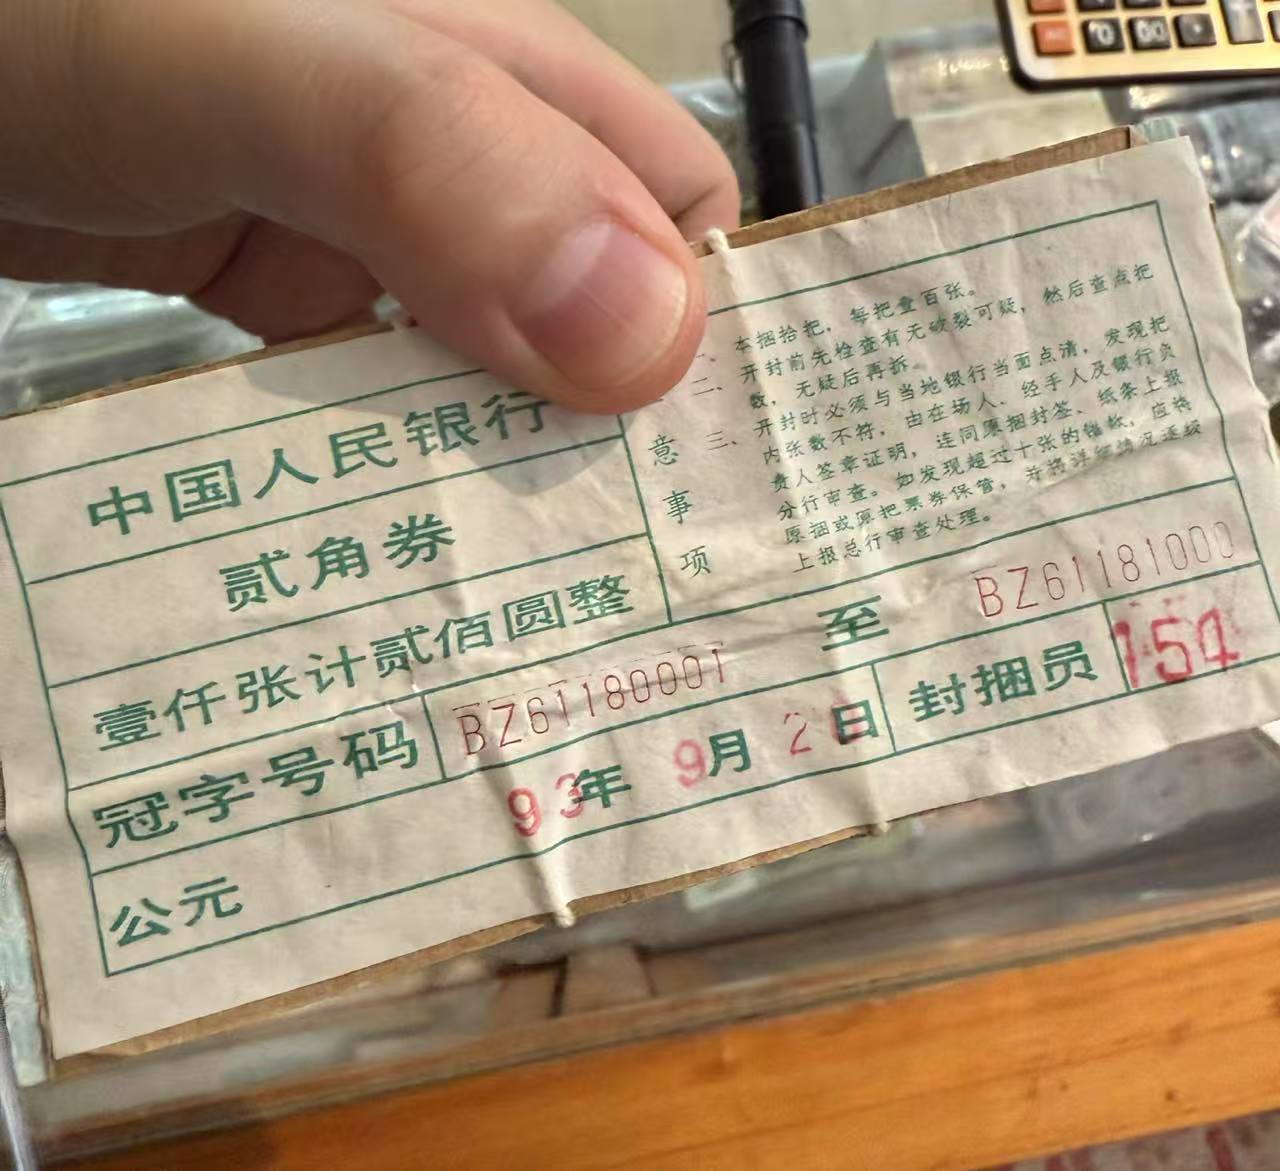 中国人民银行
贰角券
壹仟张计贰佰圆整
意
事
项
一、本捆拾把，每把壹百张。
二、开封前先检查有无破裂可疑，然后查点把
数，无疑后再拆。
三、开封时必须与当地银行当面点清，发现把
内张数不符，由在场人、经手人及银行负
责人签章证明，连同原捆封签、纸条上报
分行审查。如发现超过十张的错帐，应将
原捆或原把票券保管，并将详细情况逐级
上报总行审查处理。
冠字号码 BZ61180001 至 BZ61181000
公元 93年 9月 2 日 封捆员 154
0 00 ·